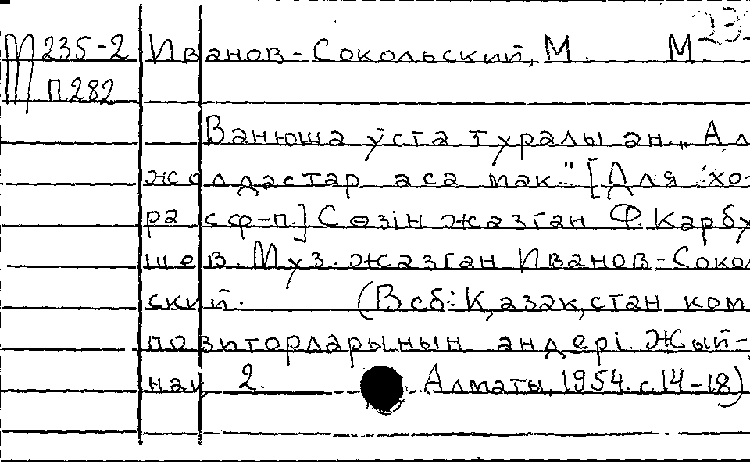 М 235-2 Иванов-Сокольский, М. М. 23
П282
Ванюша уста туралы ән. „Ал
жолдастар аса мак" [Для хо-
ра с ф-п.] Сөзін жазған Ф. Карбу
шев. Муз. жазған Иванов-Соколь
ский. (В сб: Қазақстан ком
позиторларының әндері. Жый-
нақ 2. Алматы, 1954. с. 14-18)